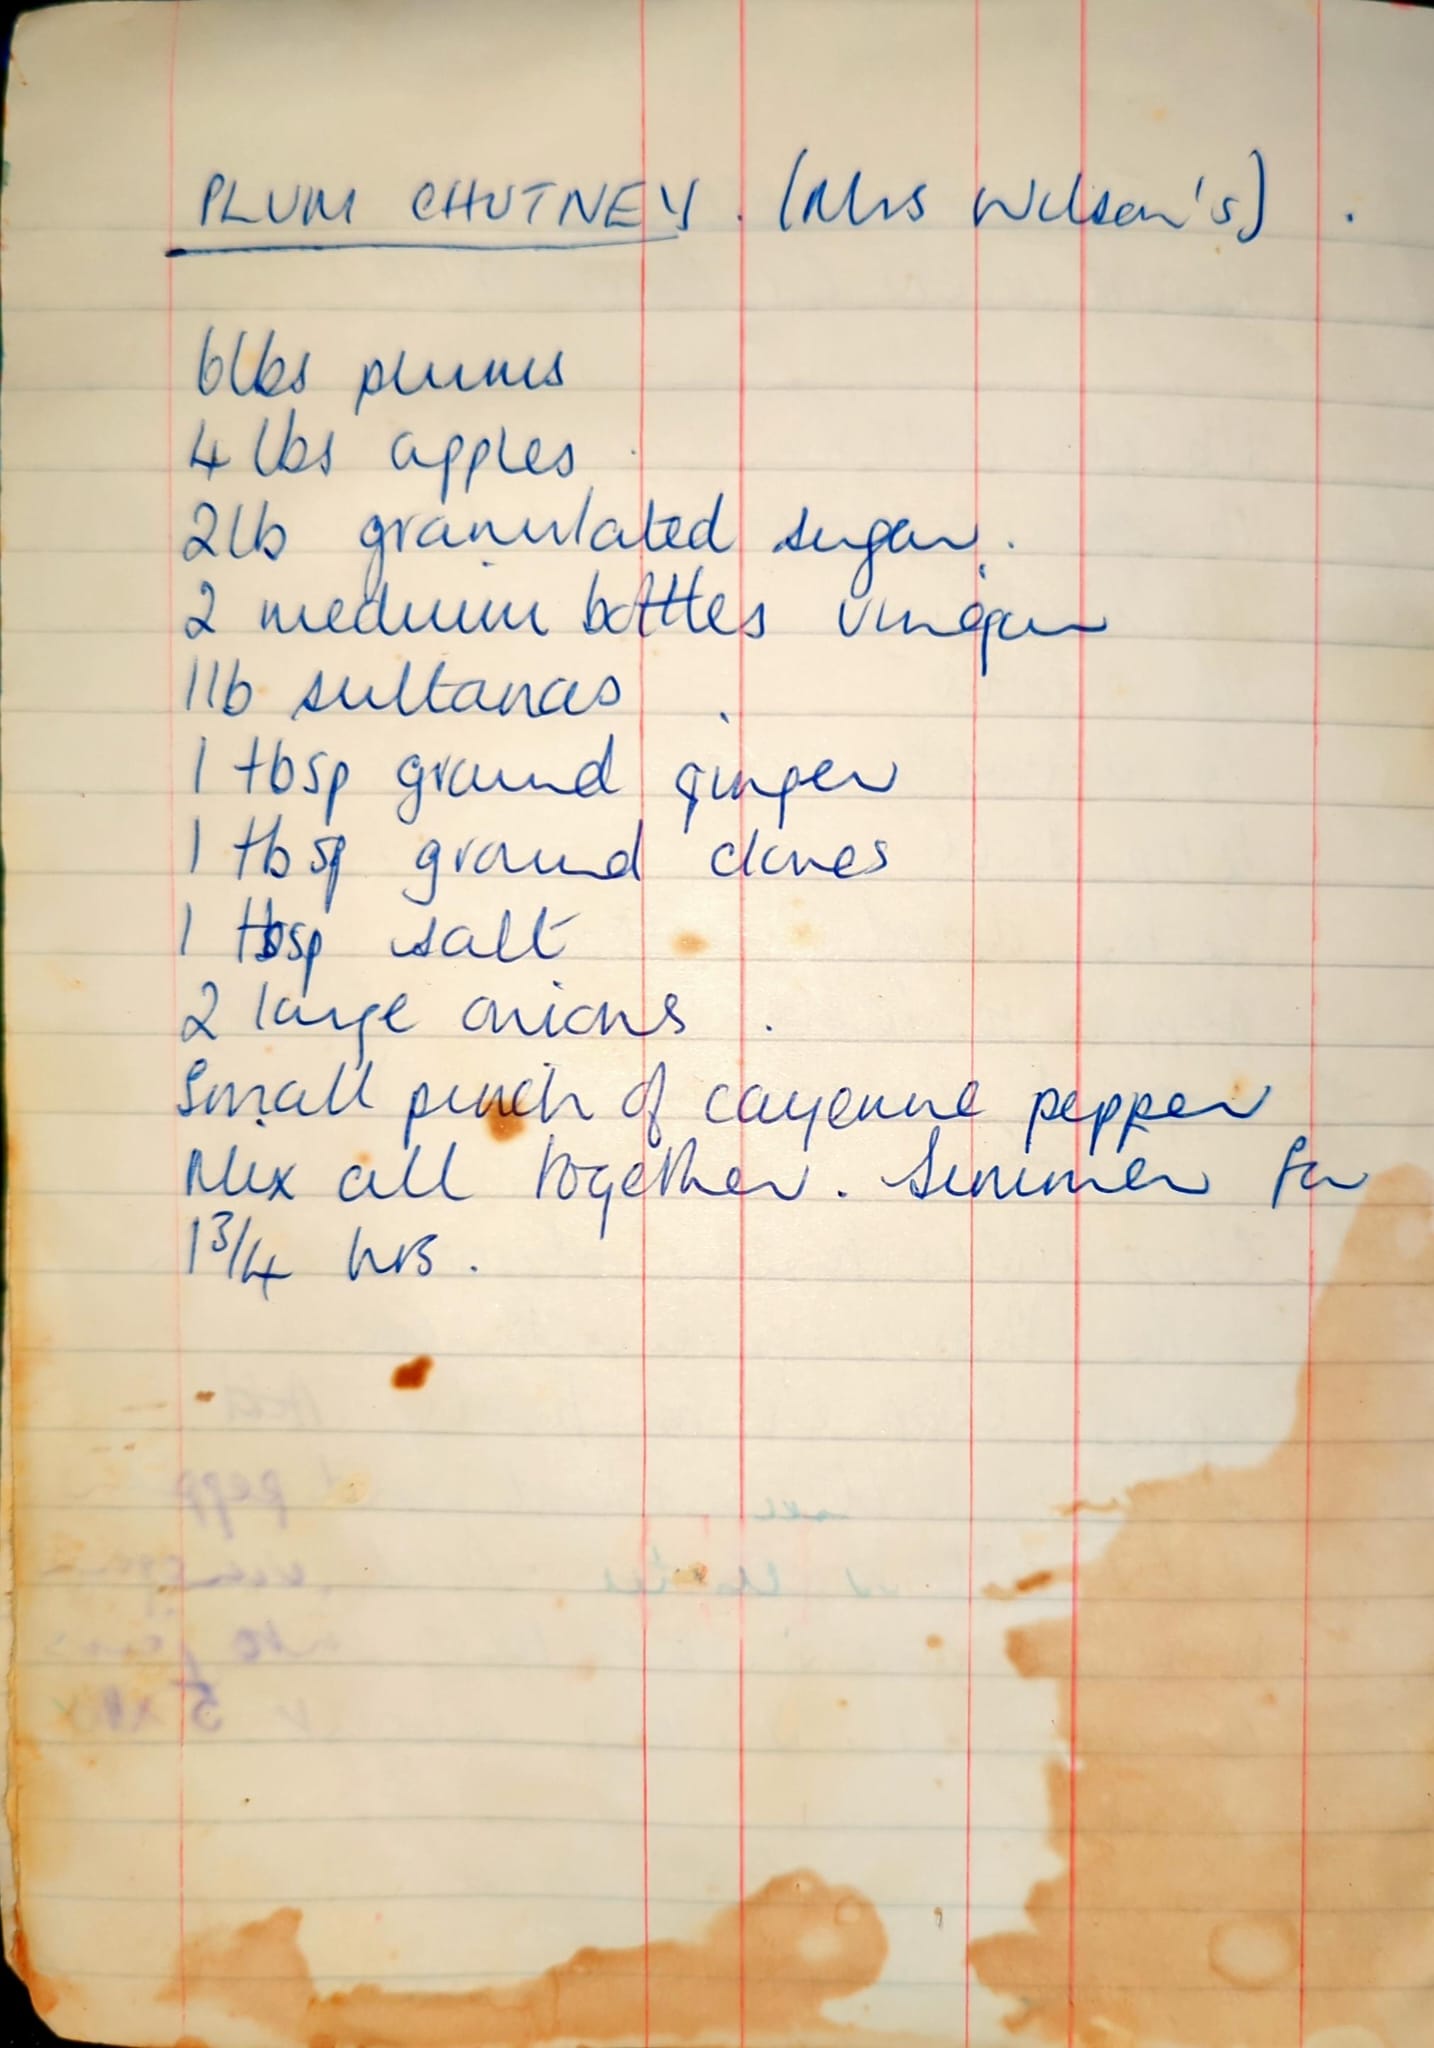 PLUM CHUTNEY. (Mrs Wilson's).
6lbs plums
4 lbs apples
2lb granulated sugar.
2 medium bottles vinegar
1lb sultanas
1 tbsp ground ginger
1 tbsp ground cloves
1 tbsp salt
2 large onions.
Small pinch of cayenne pepper
Mix all together. Simmer for
1 3/4 hrs.